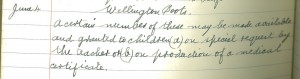 June 4 Wellington Boots.
A certain number of these may be made available
and granted to children (a) on special request by
the teacher or (b) on production of a medical
certificate.